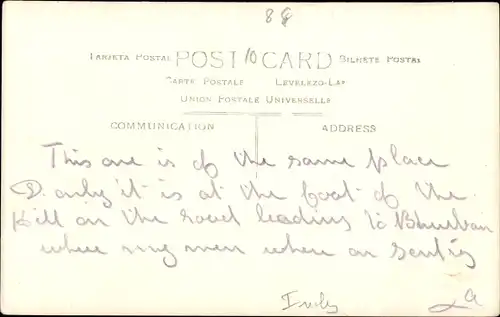 8
TARJETA POSTAL POST 10 CARD BILHETE POSTAL
CARTE POSTALE LEVELEZO-LAP
UNION POSTALE UNIVERSELLE
COMMUNICATION ADDRESS
This one is of the same place
D. only it is at the foot of the
hill on the road leading to Bhurban
where my men where on sentry